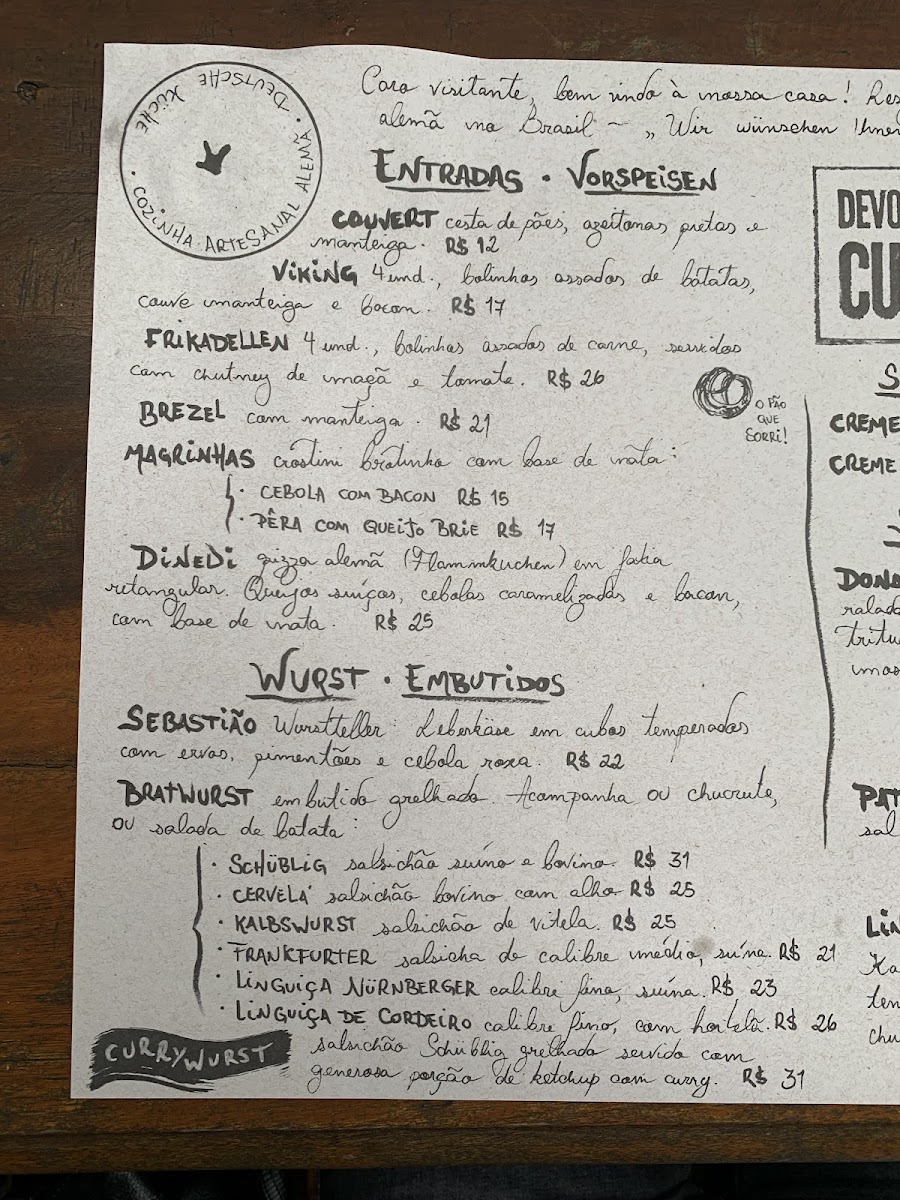 DEUTSCHE KÜCHE · COZINHA ARTESANAL ALEMÃ ·
Caro visitante, bem vindo à nossa casa! Res
alemã no Brasil ~ „Wir wünschen Ihnen
ENTRADAS · VORSPEISEN
COUVERT cesta de pães, azeitonas pretas e
manteiga. R$ 12
VIKING 4 und., bolinhos assados de batatas,
couve manteiga e bacon. R$ 17
FRIKADELLEN 4 und., bolinhos assados de carne, servidos
com chutney de maçã e tomate. R$ 26
BREZEL com manteiga. R$ 21
O PÃO
QUE
SORRI!
MAGRINHAS crostini bratinho com base de nata:
· CEBOLA COM BACON R$ 15
· PÊRA COM QUEIJO BRIE R$ 17
DINEDI pizza alemã (Flammkuchen) em fatia
retangular. Queijos suíços, cebolas caramelizadas e bacon,
com base de nata. R$ 25
WURST · EMBUTIDOS
SEBASTIÃO Wurstteller: Leberkäse em cubos temperados
com ervas, pimentões e cebola roxa. R$ 22
BRATWURST embutido grelhado. Acompanha ou chucrute,
ou salada de batata:
· SCHÜBLIG salsichão suíno e bovino. R$ 31
· CERVELÁ salsichão bovino com alho R$ 25
· KALBSWURST salsichão de vitela. R$ 25
· FRANKFURTER salsicha de calibre médio, suína. R$ 21
· LINGUIÇA NÜRNBERGER calibre fino, suína. R$ 23
· LINGUIÇA DE CORDEIRO calibre fino, com hortelã. R$ 26
CURRYWURST salsichão Schüblig grelhado servido com
generosa porção de ketchup com curry. R$ 31
DEVO
CU
S
CREME
CREME
DONA
ralada
tritu
PAT
sal
LIN
Ka
ten
chu